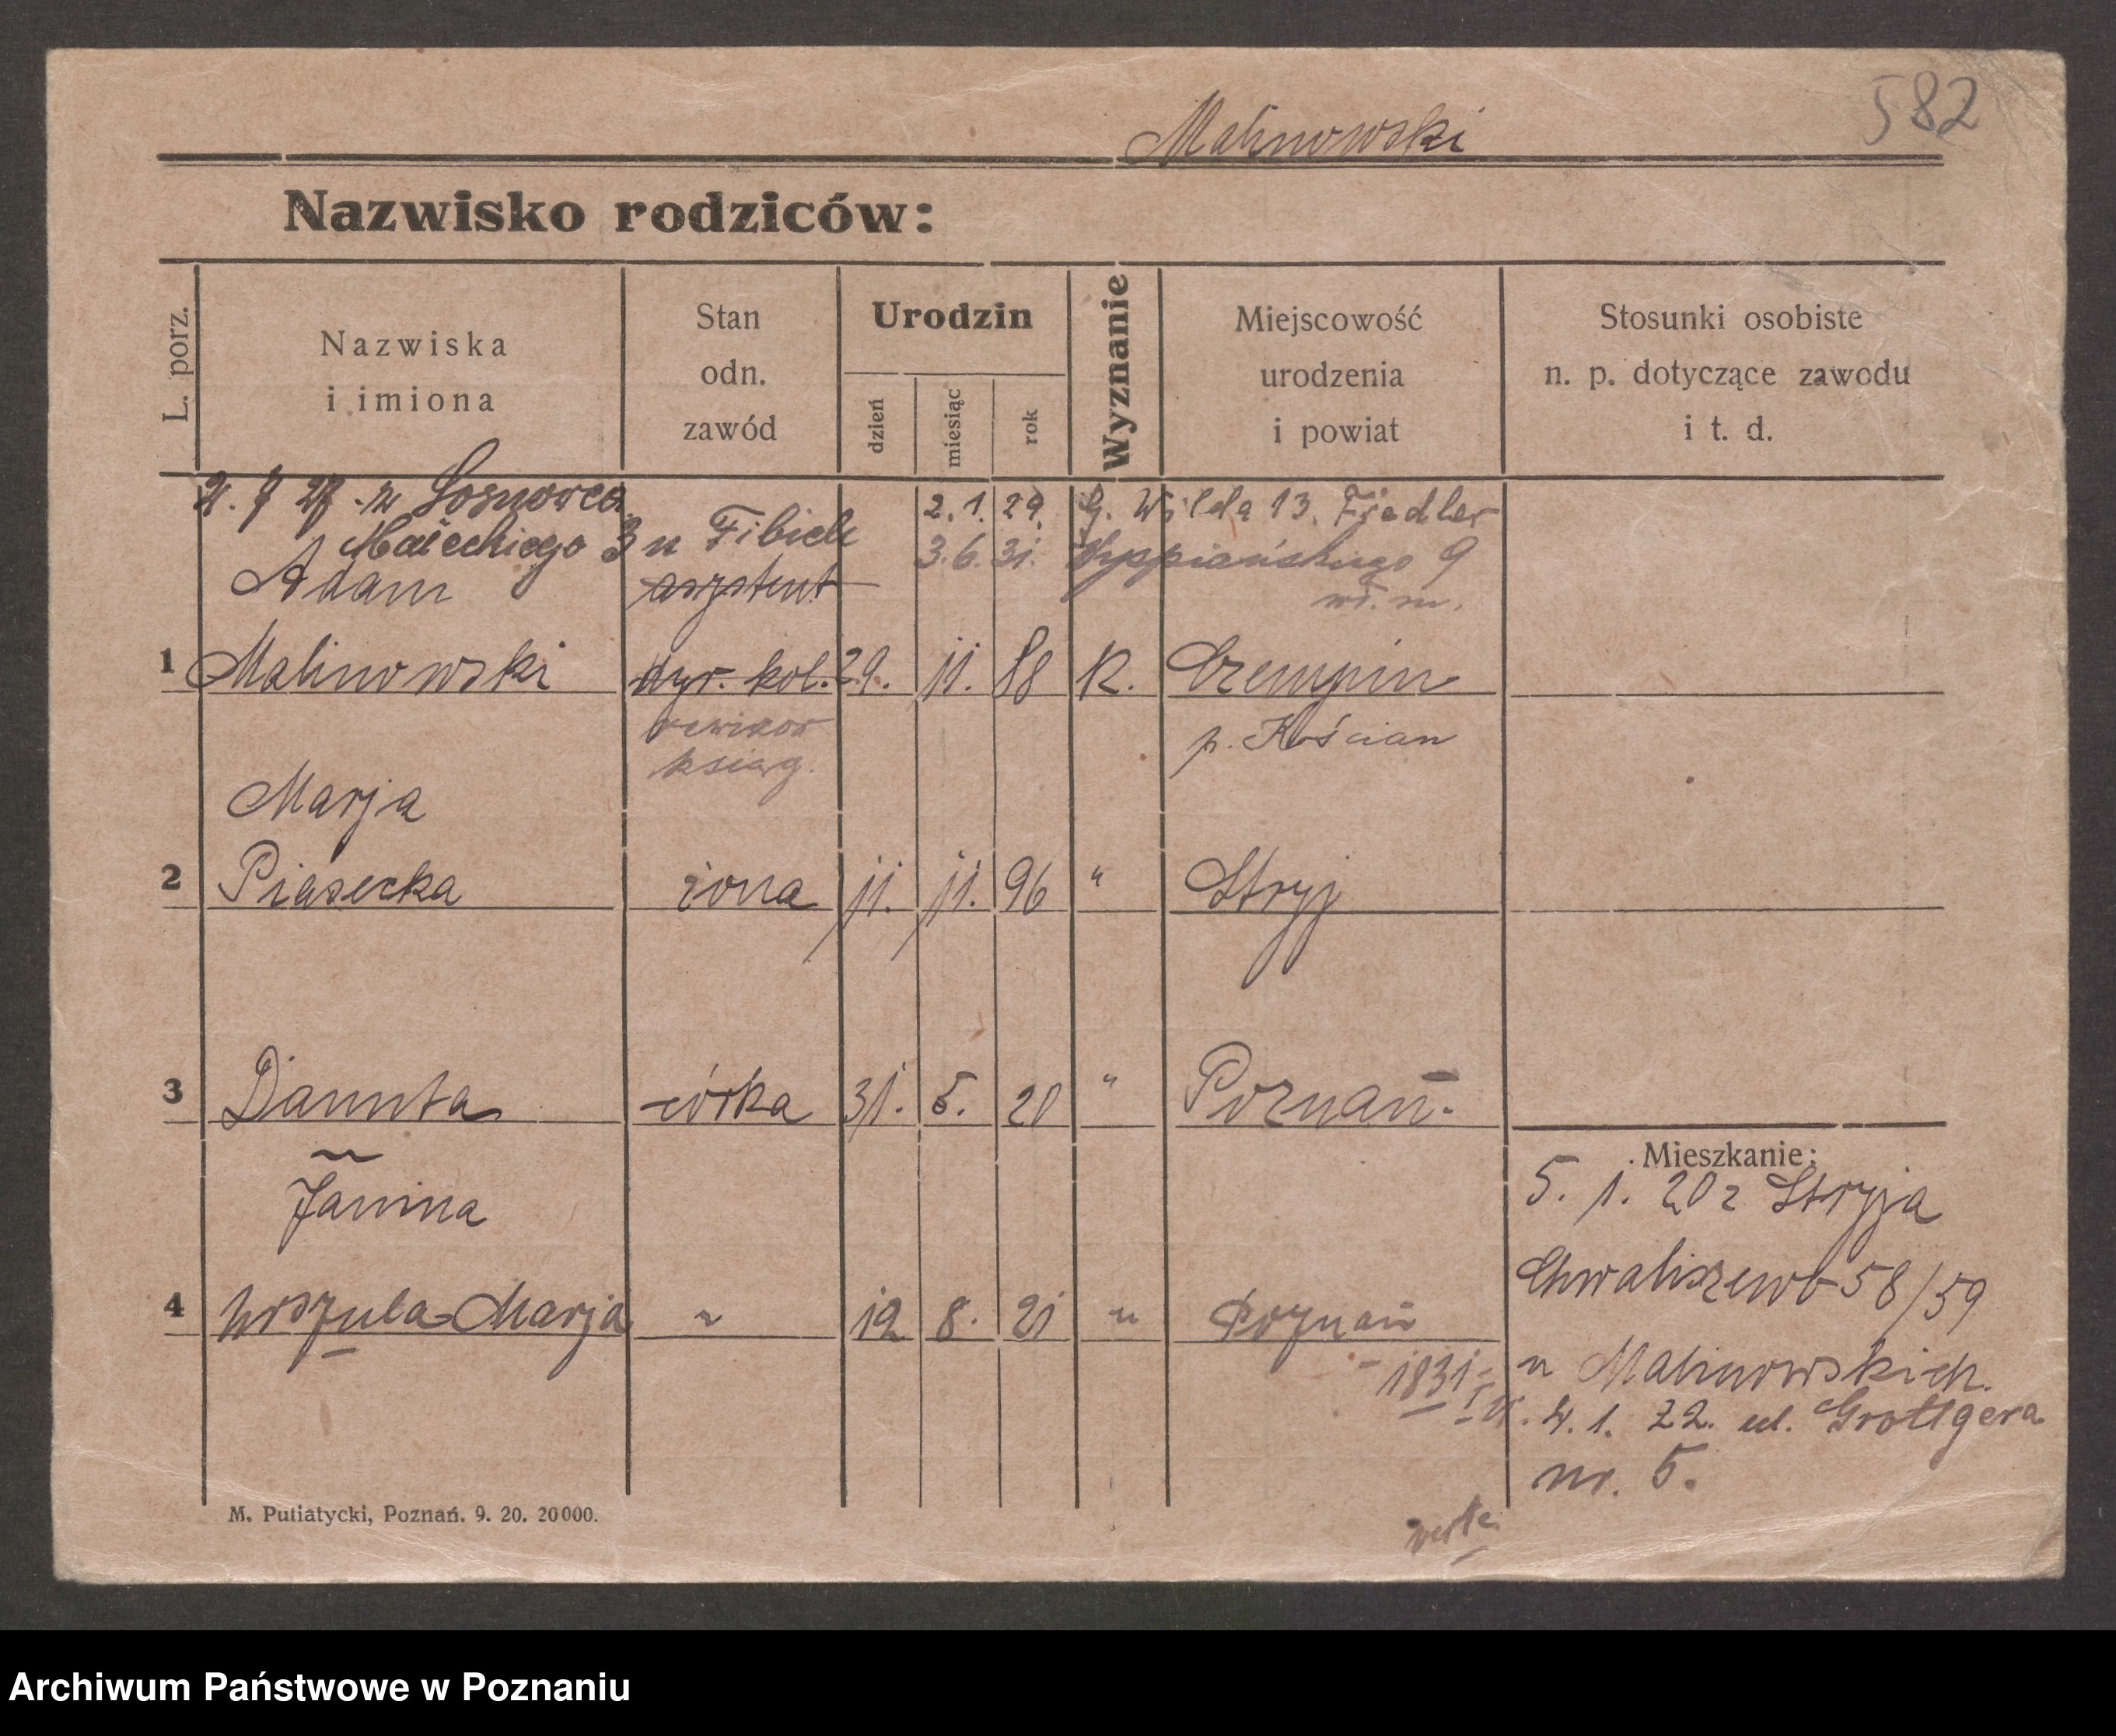 582
Malinowski
Nazwisko rodziców:
L. porz.
Nazwiska
i imiona
Stan
odn.
zawód
Urodzin
dzień
miesiąc
rok
Wyznanie
Miejscowość
urodzenia
i powiat
Stosunki osobiste
n. p. dotyczące zawodu
i t. d.
z Sosnowca
Małeckiego 3 u Fibich
2. 1. 29. G. Wilda 13. Fiedler
3. 6. 31. Wyspiańskiego 9
wł. m.
Adam asystent
1 Malinowski dyr. kol. 29. 11. 88 K. Czempin
rewizor
księg.
p. Kościan
Marja
2 Piasecka żona 11. 11. 96 " Stryj
3 Danuta córka 31. 5. 20 " Poznań.
Janina
4 Urszula-Marja " 12 8. 21 " Poznań
1831
Mieszkanie:
5. 1. 20 z Stryja
Chwaliszewo 58/59
u Malinowskich.
4. 1. 22. ul. Grottgera
nr. 5.
verte
M. Putiatycki, Poznań. 9. 20. 20000.
Archiwum Państwowe w Poznaniu